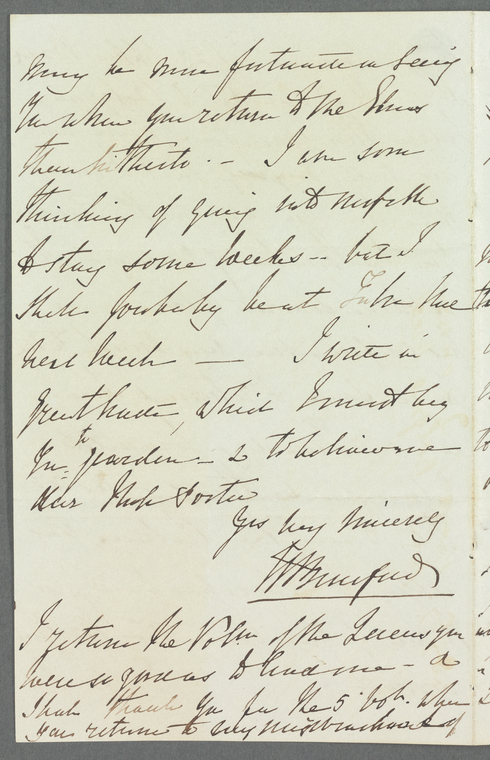 may be more fortunate in seeing
you when you return to the Elms
than hitherto. — I am soon
thinking of going into Norfolk
to stay some weeks — but I
shall probably be at home
next week — I write in
great haste, which I must beg
you to pardon — & to believe me
dear Miss Porter
Yrs very sincerely
I return the Vol: of the you
were so good as to lend me — &
I shall thank you for the 5 vol: when
you return to my of